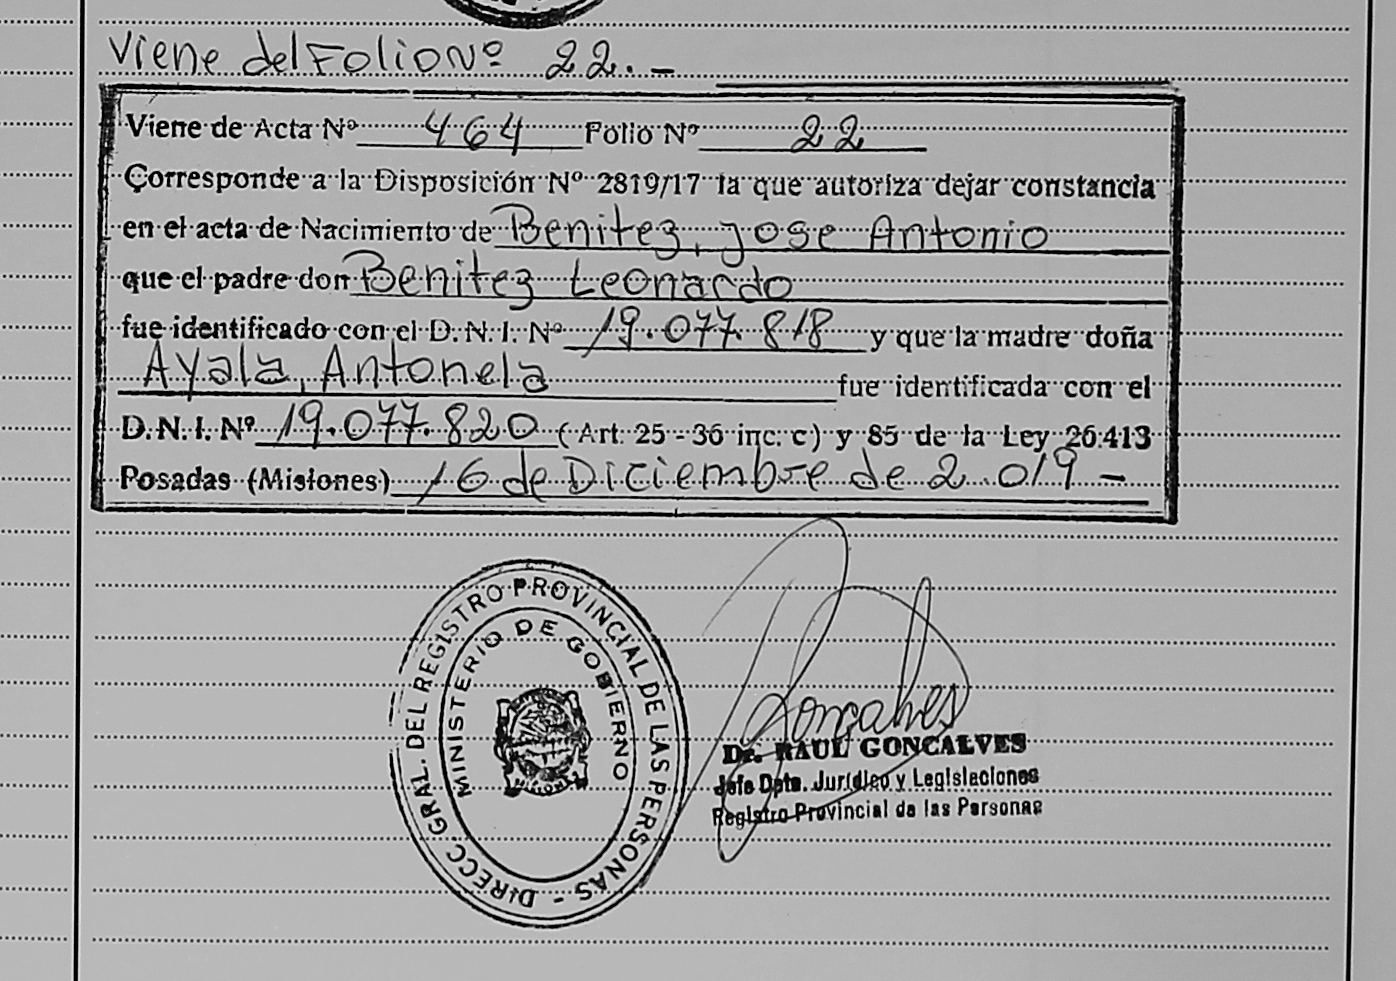 Viene del Folio Nº 22.-
Viene de Acta Nº 464 Folio Nº 22
Corresponde a la Disposición Nº 2819/17 la que autoriza dejar constancia
en el acta de Nacimiento de Benitez, Jose Antonio
que el padre don Benitez Leonardo
fue identificado con el D. N. I. Nº 19.077.818 y que la madre doña
Ayala, Antonela fue identificada con el
D. N. I. Nº 19.077.820 (Art. 25 - 36 inc. c) y 85 de la Ley 26.413
Posadas (Misiones) 16 de Diciembre de 2.019 -
DIRECC. GRAL. DEL REGISTRO PROVINCIAL DE LAS PERSONAS -
MINISTERIO DE GOBIERNO
MISIONES
Goncalves
Dr. RAUL GONCALVES
Jefe Dpto. Jurídico y Legislaciones
Registro Provincial de las Personas